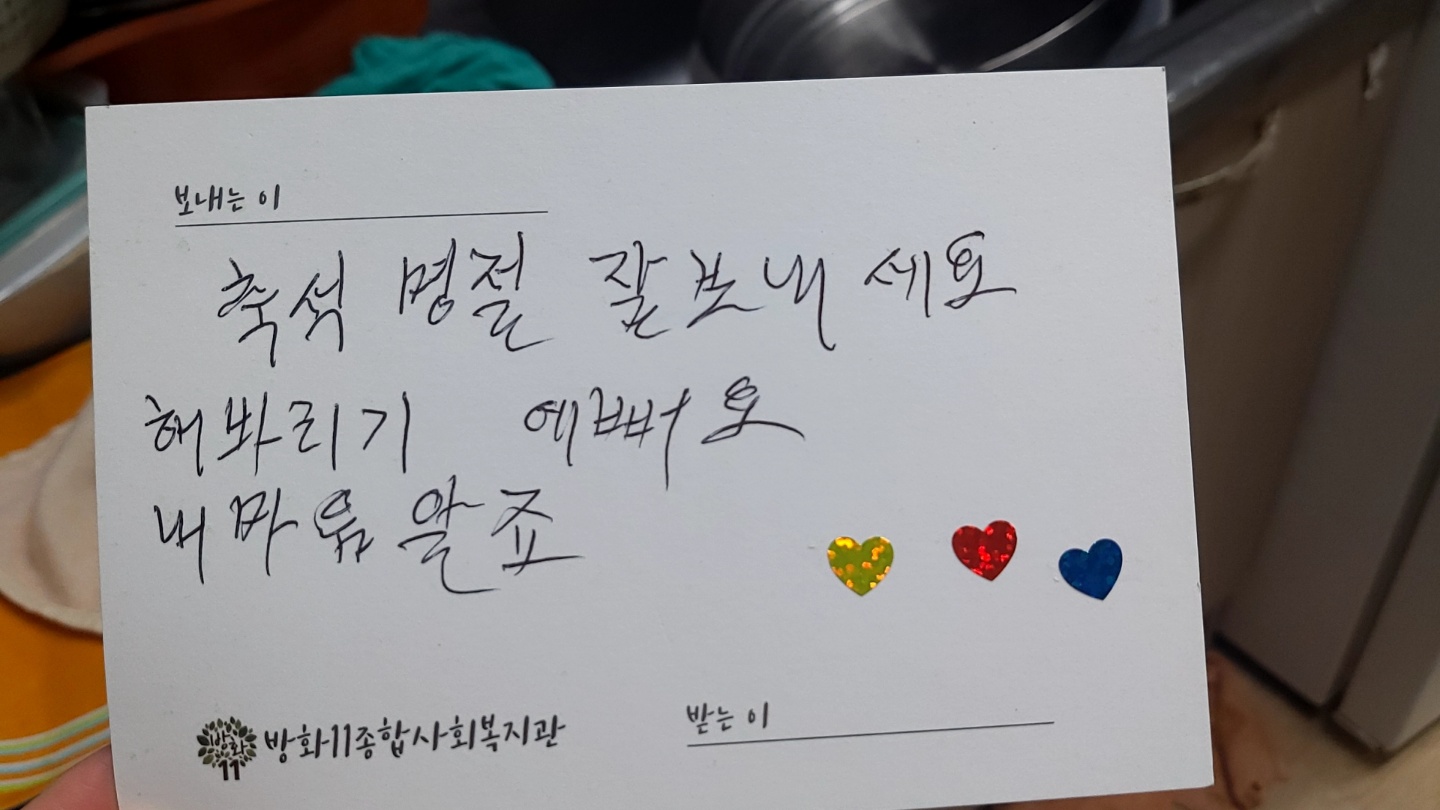 보내는 이
축석 명절 잘보내 세요
해봐리기 예뻐요
내 마음 알죠
방화
11
방화11종합사회복지관
받는 이